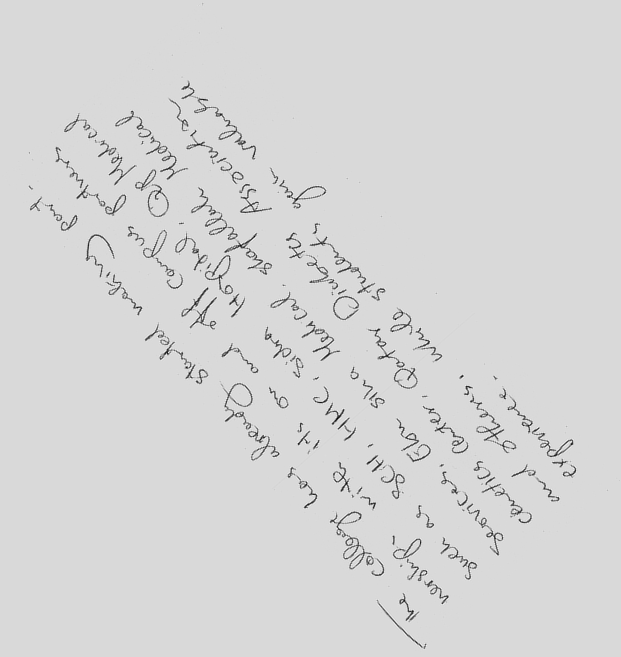 The College has already started making part-
nership, with its on and off campus partners
such as SCH, HMC, Sidra Hospital, QP Medical
Services, Ebn Sina Medical, Shafallah Medical
Genetics Center, Qatar Diabetes Association
and others, while students gain valuable
experience.